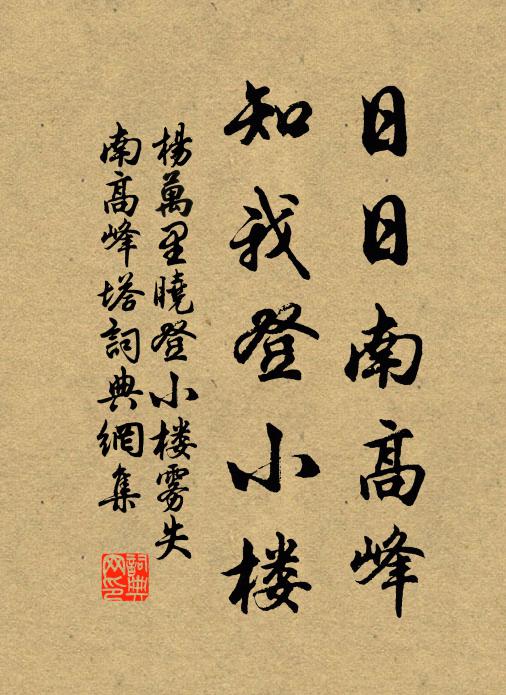 日日南高峰
知我登小楼
楊萬里曉登小楼雾失
南高峰塔詞典網集
詞典网印